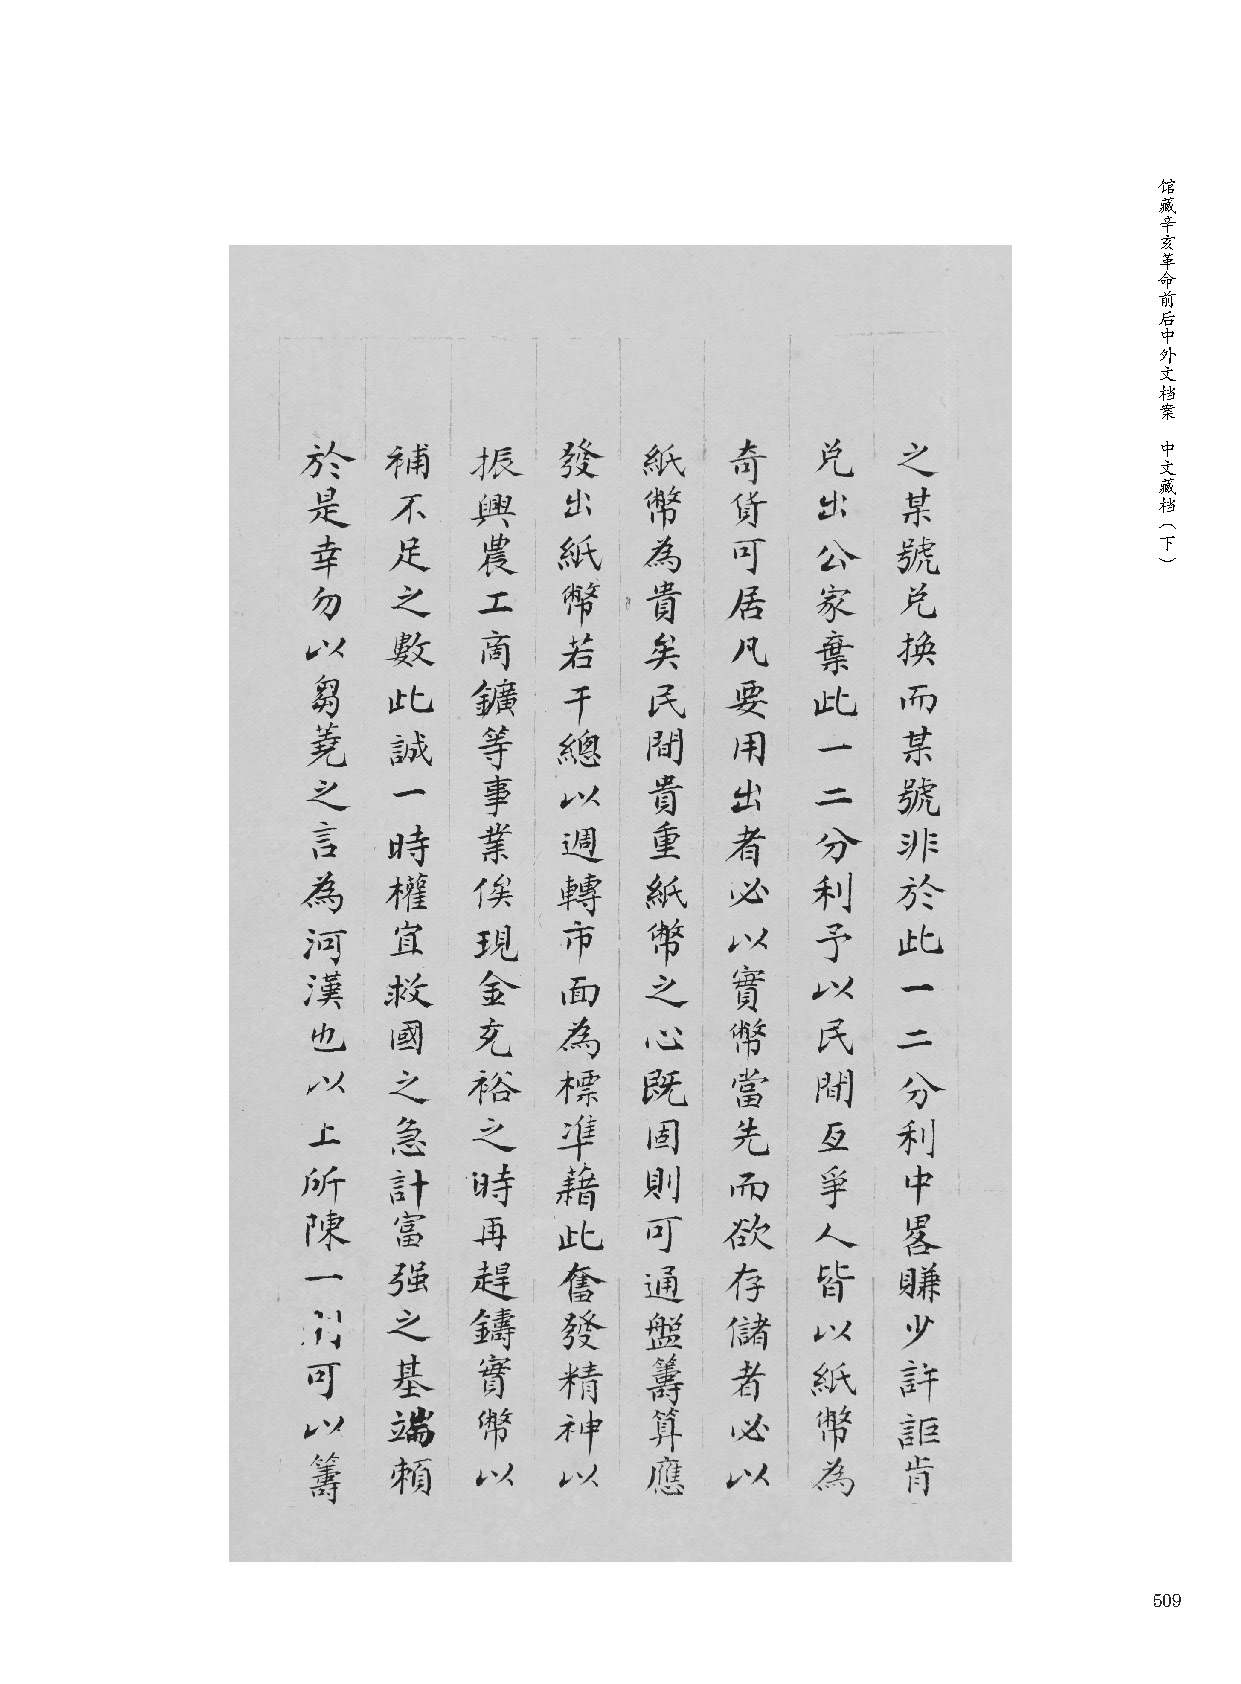 馆藏辛亥革命前后中外文档案　中文藏档（下）
之某號兑換而某號非於此一二分利中畧賺少許詎肯
兑出公家棄此一二分利予以民間互爭人皆以紙幣為
奇貨可居凡要用出者必以實幣當先而欲存儲者必以
紙幣為貴矣民間貴重紙幣之心既固則可通盤籌算應
發出紙幣若干總以週轉市面為標準藉此奮發精神以
振興農工商鑛等事業俟現金充裕之時再趕鑄實幣以
補不足之數此誠一時權宜救國之急計富强之基端賴
於是幸勿以芻蕘之言為河漢也以上所陳一可以籌
509